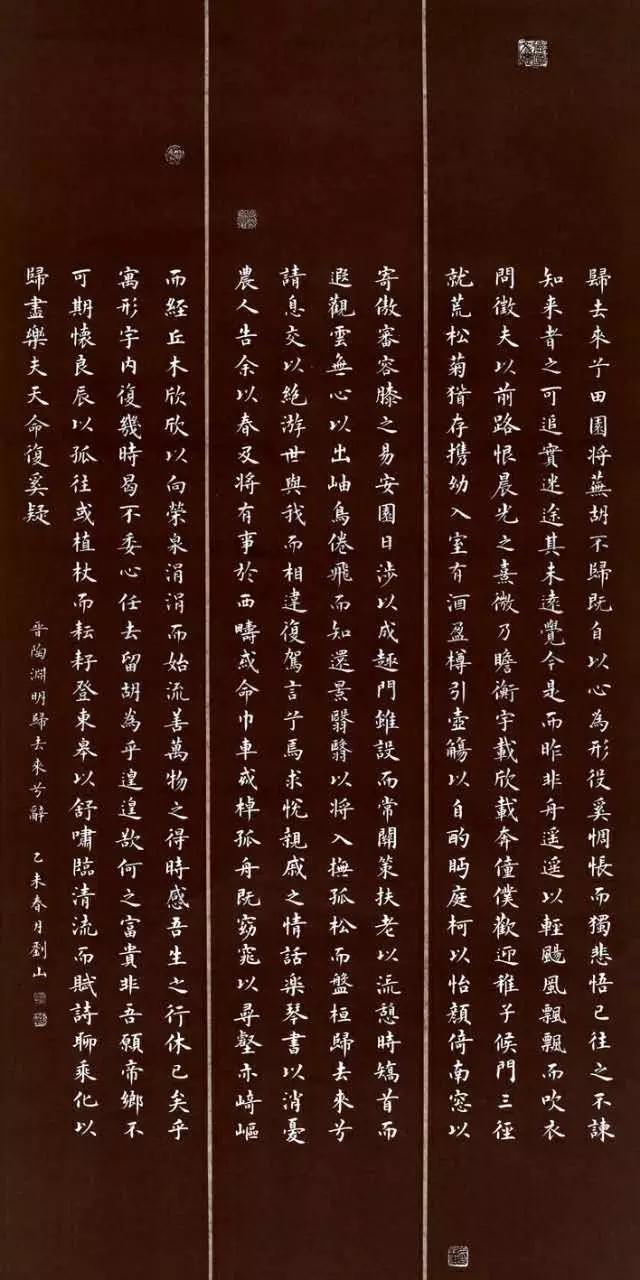 歸去來兮田園将蕪胡不歸既自以心為形役奚惆悵而獨悲悟已往之不諫
知来者之可追實迷途其未遠覺今是而昨非舟遥遥以輕颺風飄飄而吹衣
問徵夫以前路恨晨光之熹微乃瞻衡宇載欣載奔僮僕歡迎稚子候門三徑
就荒松菊猶存携幼入室有酒盈樽引壺觴以自酌眄庭柯以怡顏倚南窓以
寄傲審容膝之易安園日涉以成趣門雖設而常關策扶老以流憩時矯首而
遐觀雲無心以出岫鳥倦飛而知還景翳翳以将入撫孤松而盤桓歸去來兮
請息交以絶游世與我而相違復駕言兮焉求悅親戚之情話楽琴書以消憂
農人告余以春及将有事於西疇或命巾車或棹孤舟既窈窕以尋壑亦崎嶇
而經丘木欣欣以向榮泉涓涓而始流善萬物之得時感吾生之行休已矣乎
寓形宇内復幾時曷不委心任去留胡為乎遑遑欲何之富貴非吾願帝鄉不
可期懷良辰以孤往或植杖而耘耔登東皋以舒嘯臨清流而賦詩聊乘化以
歸盡樂夫天命復奚疑
晋陶淵明歸去來兮辭 乙未春月劉山